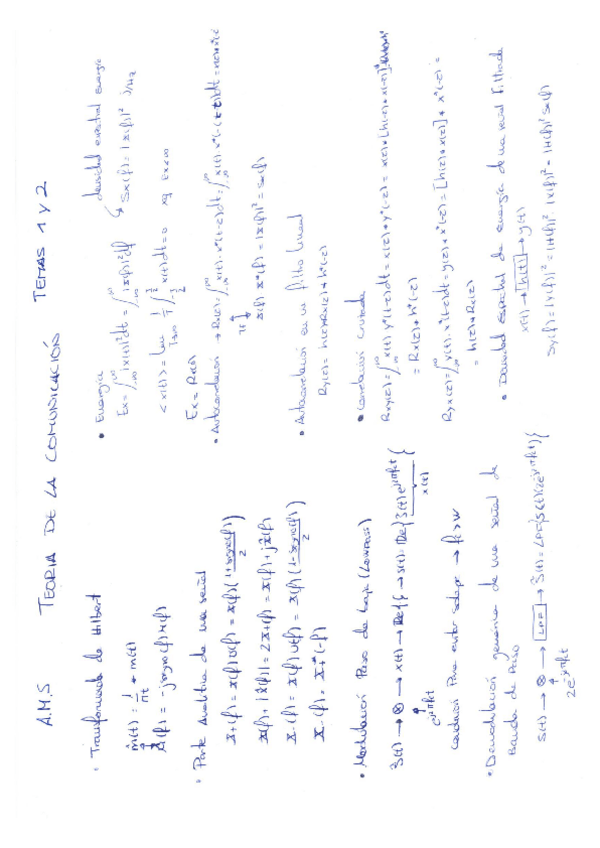 A.M.S TEORIA DE LA COMUNICACIÓN TEMAS 1 Y 2
• Transformada de Hilbert
m̂(t) = 1/πt * m(t)
M̂(f) = -jsgn(f)M(f)
• Parte Analítica de una señal
X+(f) = X(f)U(f) = X(f)(1+sgn(f)/2)
X(f) + jX̂(f) = 2X+(f) = X(f)+jX̂(f)
X-(f) = X(f)U(-f) = X(f)(1-sgn(f)/2)
X-(f) = X+*(-f)
• Modulación Paso de baja (Lowpass)
s̃(t) → ⊗ → x(t) → Re{} → s(t) = Re{s̃(t)e^j2πfct}
e^j2πfct
x(t)
Condición Para evitar solapar → fc>W
• Demodulación generica de una señal de
Banda de Paso
s(t) → ⊗ → LPF → s̃(t) = LPF{s(t)2e^-j2πfct}
2e^-j2πfct
• Energía densidad espectral energía
Ex = ∫|x(t)|²dt = ∫|X(f)|²df Sx(f) = |X(f)|² J/Hz
<x(t)> = lim 1/T ∫ x(t)dt = 0 xq Ex<∞
Ex = Rx(0)
• Autocorrelación → Rx(τ) = ∫x(t)·x*(t-τ)dt = ∫x(t)·x*(-(τ-t))dt
TF
X(f) X*(f) = |X(f)|² = Sx(f)
• Autocorrelación en un filtro lineal
Ry(τ) = h(τ)*Rx(τ)*h*(-τ)
• Correlación cruzada
Rxy(τ) = ∫x(t) y*(t-τ)dt = x(τ)*y*(-τ) = x(τ)*[h(-τ)*x(-τ)]*
= Rx(τ)*h*(-τ)
Ryx(τ) = ∫y(t)·x*(t-τ)dt = y(τ)*x*(-τ) = [h(τ)*x(τ)]*x*(-τ) =
= h(τ)*Rx(τ)
• Densidad espectral de energía de una señal filtrada
x(t) → h(t) → y(t)
Sy(f) = |Y(f)|² = |H(f)|²·|X(f)|² = |H(f)|² Sx(f)